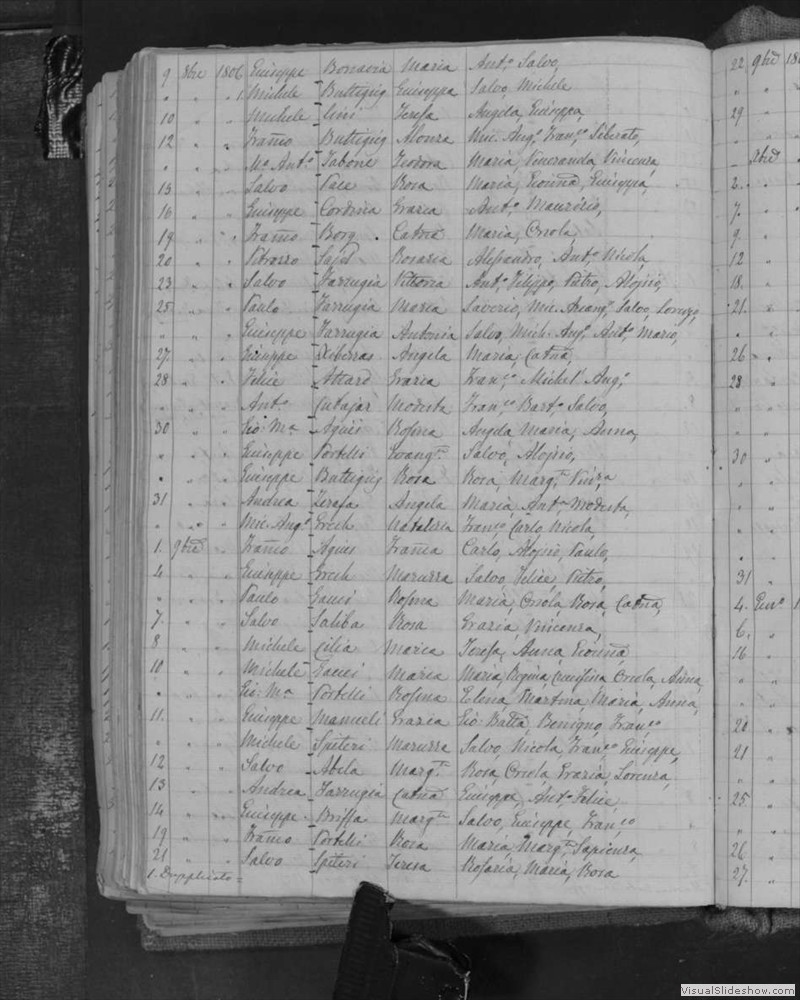 9 8bre 1806 Giuseppe Bonavia Maria Ant.o Salvo,
" " " Michele Buttigieg Giuseppa Salvo Michele
10 " " Michele Cini Teresa Angela, Giuseppa,
12 " " Franco Buttigieg Alonza Mic. Ang.o Fran.co Liberato,
" " " Ma. Ant.o Tabone Teodora Maria, Veneranda, Vincenza,
15 " " Salvo Pace Rosa Maria, Gioanna, Giuseppa,
16 " " Giuseppe Cordina Grazia Ant.o Maurizio,
19 " " Franco Borg Catna Maria, Orsola
20 " " Said Rosaria Alessandro, Ant.o Nicola
23 " " Salvo Farrugia Vittoria Ant.o Filippo, Pietro, Aloisio,
25 " " Paulo Farrugia Maria Saverio, Mic. Arcang.o Salvo, Lorenzo,
" " " Giuseppe Farrugia Antonia Salvo, Mich. Ang.o Ant.o Mario,
27 " " Giuseppe Xiberras Angela Maria, Catna,
28 " " Felice Attard Grazia Fran.co Michel' Ang.o
" " " Ant.o Cutajar Modesta Fran.co Bart.o Salvo,
30 " " Gio: Ma. Agius Rosina Angela Maria, Anna,
" " " Giuseppe Portelli Evang.ta Salvo, Aloisio,
" " " Giuseppe Buttigieg Rosa Rosa, Marg.ta
31 " " Andrea Zerafa Angela Maria, Ant.a Modesta,
" " " Mic. Ang.o Grech Natalizia Fran.co Carlo Nicola,
1. 9bre " Franco Agius Franca Carlo, Aloisio, Paulo,
4 " " Giuseppe Grech Maruzza Salvo, Felice, Pietro,
" " " Paulo Gauci Rosina Maria, Orsola, Rosa, Catna,
7. " " Salvo Saliba Rosa Grazia, Vincenza,
8 " " Michele Cilia Maria Teresa, Anna, Gioanna
10 " " Michele Gauci Maria Maria, Regina Crocifissa Orsola, Anna,
" " " Gio: Ma. Portelli Rosina Elena, Martina, Maria, Anna,
11. " " Giuseppe Mamueli Grazia Gio: Batta, Benigno, Fran.co
" " " Michele Spiteri Maruzza Salvo, Nicola, Fran.co Giuseppe,
12 " " Salvo Abela Marg.ta Rosa, Orsola Grazia, Lorenza,
13 " " Andrea Farrugia Catna Giuseppe, Ant.o Felice
14 " " Giuseppe Briffa Marg.ta Salvo, Giuseppe, Fran.co
19 " " Franco Portelli Rosa Maria Marg.ta Sapienza,
21 " " Salvo Spiteri Teresa Rosaria, Maria, Rosa
1. Dupplicato =
22 9bre 18
" "
29 "
" "
_ Xbre "
2. "
7. "
9. "
12 "
18. "
21. "
" "
26 "
28 "
" "
" "
30 "
" "
" "
" "
" "
31 "
4. Gen.o 1
6. "
16 "
" "
" "
20 "
21 "
" "
25 "
" "
26 "
27. "
VisualSlideshow.com